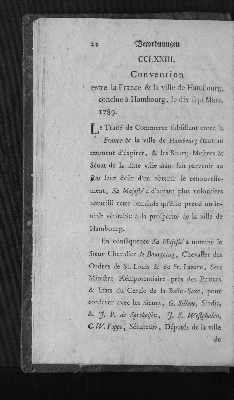 22 Verordnungen
CCLXXIII.
Convention
entre la France & la ville de Hambourg,
conclue à Hambourg, le dix sept Mars,
1789.
Le Traité de Commerce subsistant entre la
France & la ville de Hambourg étant au
moment d'expirer, & les Bourg-Maîtres &
Sénat de la ditte ville aiant fait parvenir au
Roi leur désir d'en obtenir le renouvelle-
ment, Sa Majesté a d'autant plus volontiers
accueilli cette demande qu'elle prend un in-
térêt véritable à la prospérité de la ville de
Hambourg.
En conséquence Sa Majesté a nommé le
Sieur Chevalier de Bourgoing, Chevalier des
Ordres de St. Louis & de St. Lazare, Son
Ministre Plénipotentiaire près des Princes
& Etats du Cercle de la Basse-Saxe, pour
conférer avec les Sieurs, G. Sillem, Sindic,
& J. P. de Spreckelsen, J. E. Westphalen,
C. W. Poppe, Sénateurs, Députés de la ville
de